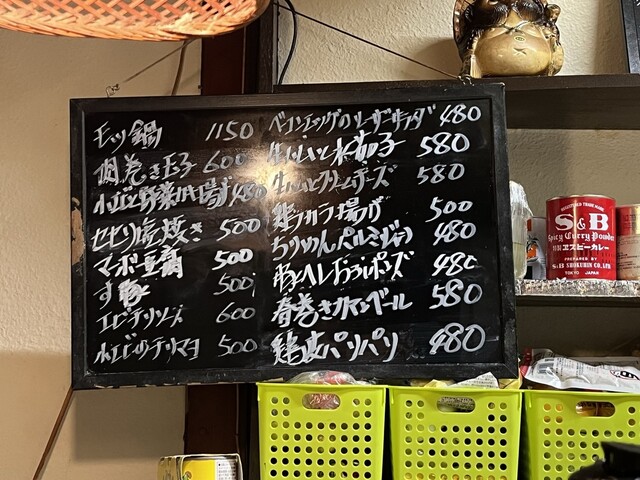 モツ鍋 1150
鰻巻き玉子 600
小エビと野菜かき揚げ 480
セセリ塩焼き 500
マーボ豆腐 500
す豚 500
エビチリソース 600
小エビのチリマヨ 500
ベーコンエッグのシーザーサラダ 480
生ハムと水茄子 580
生ハムとクリームチーズ 580
鶏カラ揚げ 500
ちりめんペペルミジャコ 480
豚ヘレおろしポンズ 480
春巻きカマンベール 580
鶏皮パリパリ 480
REGISTERED TRADE MARK
S&B
Spicy Curry Powder
特製エスビーカレー
PREPARED BY
S&B SHOKUHIN CO., LTD
TOKYO JAPAN